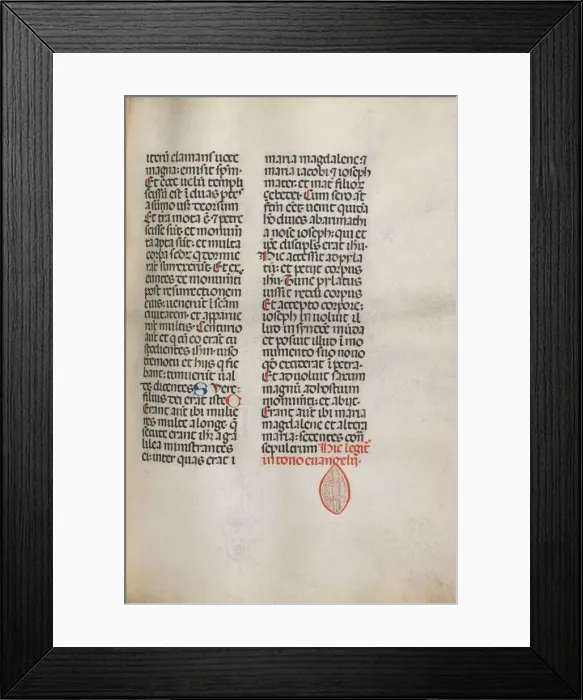 iterū clamans uoce
magna: emisit sp̄m·
Et ecce uelū templi
scissū est ī duas ptes
a sūmo usq̄ deorsum
Et tr̄a mota ē· ⁊ petre
scisse sūt· et monum̄
ta apta sūt: et multa
corpa scōr̄ q̄ dormie
rāt surrexerūt· Et ex
euntes de monum̄tis
post resurrectionem
eius: uenerūt ī scām
ciuitatem: et apparue
rūt multis· Centurio
aūt et q cū eo erāt cu
stodientes ihm· uiso
terremotu et hiis q fie
bant: timuerūt ual
de dicentes S Vere·
filius dei erat iste C
Erant aūt ibi mulie
res multe a longe q̄
secute erant ihm a ga
lilea ministrantes
ei: inter quas erat ī
maria magdalene: ⁊
maria iacobi ⁊ ioseph
mater: et mat̄ filior̄
çebedei· Cum sero aūt
fc̄m eēt: uenit quidā
hō diues ab arimathi
a noīe ioseph: qui et
ipē discipls̄ erat ihu·
Hic accessit ad pyla
tū: et petijt corpus
ihu· Tunc pylatus
iussit reddi corpus
Et accepto corpore:
ioseph inuoluit il
lud in syndōe mūda
et posuit illud ī mo
numento suo nouo
qd̄ exciderat ī petra·
Et aduoluit saxum
magnū ad hostium
monum̄ti: et abijt·
Erant aūt ibi maria
magdalene et altera
maria: sedentes cont̄
sepulcrum Hic legit̄
in tono euangelij·